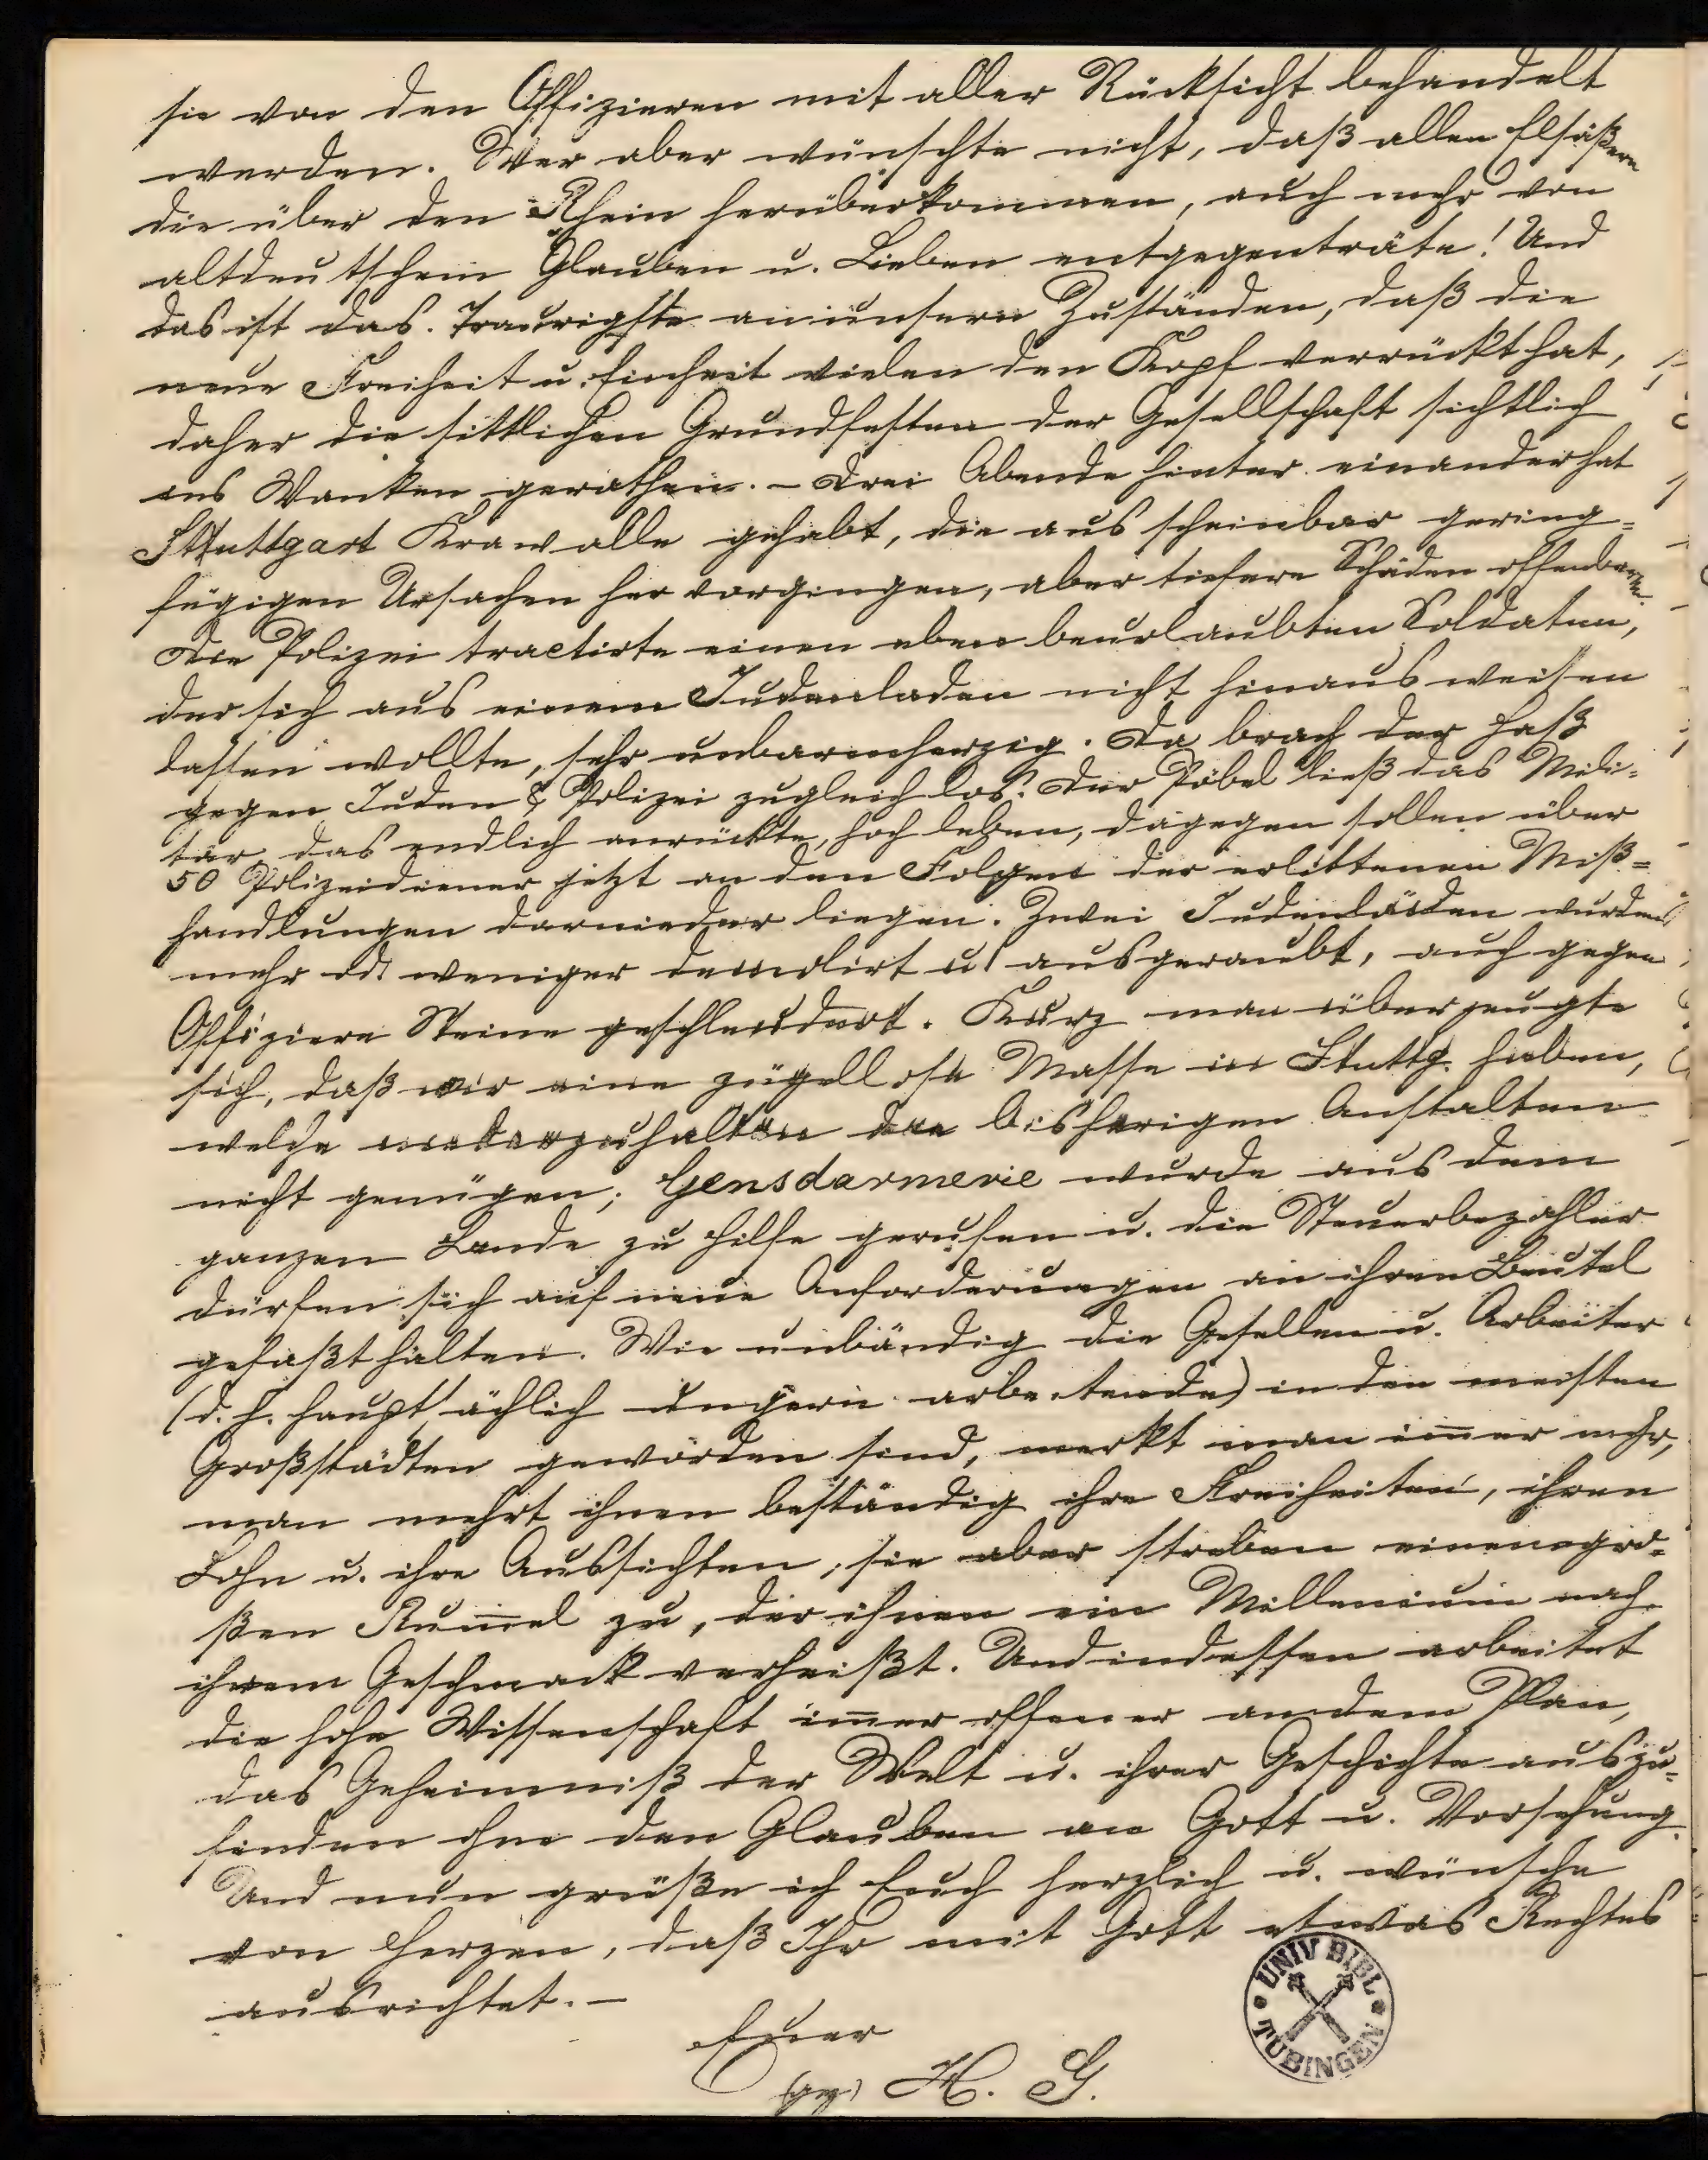 sie von den Offizieren mit aller Rücksicht behandelt
werden. Wer aber wünschte nicht, daß allen Elsäßern
die über den Rhein herüberkommen, auch mehr von
altdeutschem Glauben u. Lieben entgegenträte! Und
das ist das Traurigste an unsern Zuständen, daß die
neue Freiheit u. Einheit vielen den Kopf verrückt hat,
daher die sittlichen Grundfesten der Gesellschaft sichtlich
ins Wanken gerathen. - Drei Abende hinter einander hat
Stuttgart Krawalle gehabt, die aus scheinbar gering=
fügigen Ursachen hervorgingen, aber tiefere Schäden offenbarten.
Die Polizei tractirte einen eben beurlaubten Soldaten,
der sich aus einem Judenladen nicht hinaus weisen
lassen wollte, sehr unbarmherzig. Da brach der Haß
gegen Juden & Polizei zugleich los. Der Pöbel ließ das Mili=
tär das endlich anrückte, hoch leben, dagegen sollen über
50 Polizeidiener jetzt an den Folgen der erlittenen Miß=
handlungen darnieder liegen. Zwei Judenläden wurden
mehr od. weniger demolirt u. ausgeraubt, auch gegen
Offiziere Steine geschleudert. Kurz man überzeugte
sich, daß wir eine zügellose Masse in Stuttg. haben,
welche niederzuhalten die bisherigen Anstalten
nicht genügen; Gensdarmerie wurde aus dem
ganzen Lande zu Hilfe gerufen u. die Steuerbezahler
dürfen sich auf neue Anforderungen an ihren Beutel
gefaßt halten. Wie unbändig die Gesellen u. Arbeiter
(d. h. hauptsächlich ungern arbeitende) in den meisten
Großstädten geworden sind, merkt man im̄er mehr,
man mehrt ihnen beständig ihre Freiheiten, ihren
Lohn u. ihre Aussichten, sie aber streben einem gro=
ßen Rum̄el zu, der ihnen ein Millenium nach
ihrem Geschmack verheißt. Und indessen arbeitet
die hohe Wissenschaft im̄er offener an dem Plan,
das Geheimniß der Welt u. ihrer Geschichte auszu=
finden ohne den Glauben an Gott u. Vorsehung.
Und nun grüße ich Euch herzlich u. wünsche
von Herzen, daß Ihr mit Gott etwas Rechtes
ausrichtet. -
Euer
(gez) H. G.
UNIV BIBL
TÜBINGEN